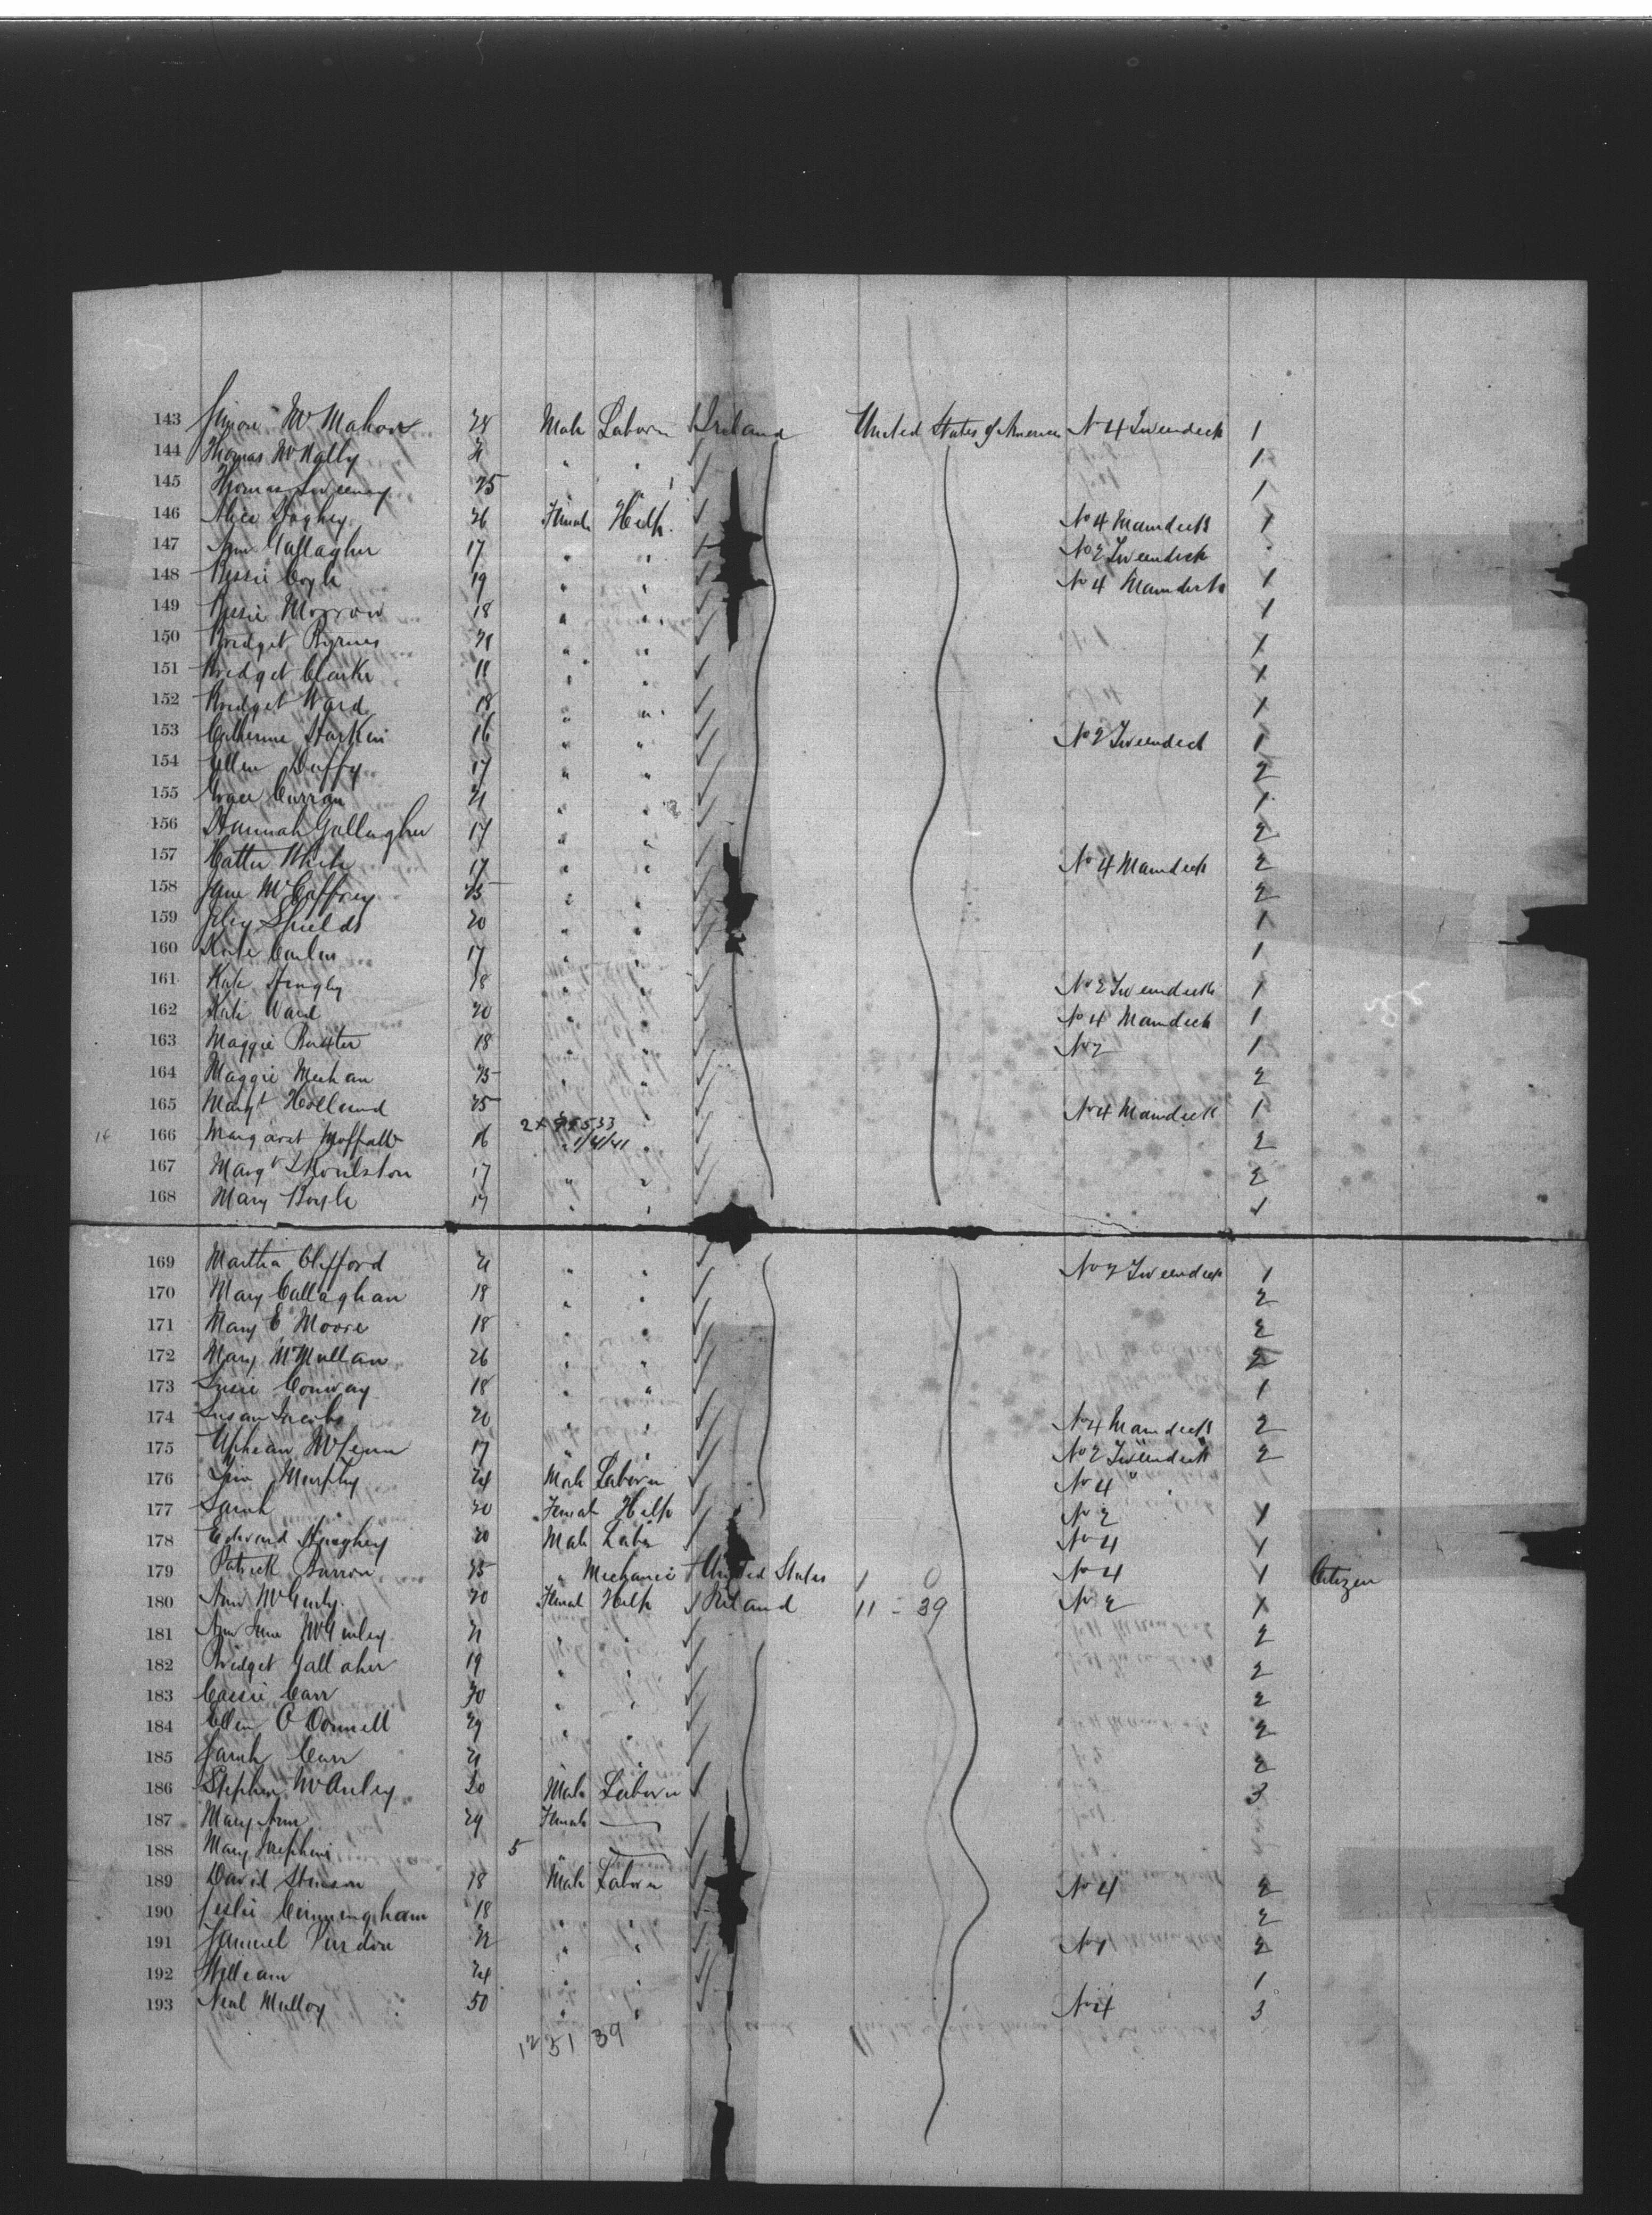 143 Simon McMahon 28 Male Laborer Ireland United States of America No 4 Tweendeck 1
144 Thomas McNally 21 " " 1
145 Thomas Sweeney 25 " " 1
146 Alice Haghey 26 Female Help. No 4 Maindeck 1
147 Ann Gallagher 17 " " No 2 Tweendeck
148 Bessie Coyle 19 " " No 4 Maindeck 1
149 Bessie Morrow 18 " " 1
150 Bridget Byrnes 21 " " 1
151 Bridget Clarke " " 1
152 Bridget Ward 18 " " 1
153 Catherine Harkin 16 " " No 2 Tweendeck 1
154 Ellen Duffy 17 " " 2
155 Grace Curran 21 " " 1
156 Hannah Gallagher 17 " " 2
157 Hattie White 17 " " No 4 Maindeck 2
158 Jane McCaffrey 25 " " 2
159 Shields 20 " " 1
160 Kate 17 " " 1
161 Kate 18 " " No 2 Tweendeck 1
162 Kate Ward 20 " " No 4 Maindeck 1
163 Maggie Baxter 18 " " No 2 1
164 Maggie Meehan 25 " " 2
165 Margt Holland 25 " No 4 Maindeck 1
16 166 Margaret Moffatt 16 1/41/41 " 2
167 Margt 17 " " 2
168 Mary Boyle 17 " " 1
169 Martha Clifford 21 " " No 2 Tweendeck 1
170 Mary Callaghan 18 " " 2
171 Mary E Moore 18 " " 2
172 Mary McMullan 26 " " 2
173 Susie Conway 18 " " 1
174 Susan Jacobs 20 " " No 4 Maindeck 2
175 17 " " No 2 Tweendeck 2
176 Murphy 24 Male Laborer No 4 "
177 Sarah 20 Female Help No 2 1
178 Edward 20 Male Labr No 4 1
179 Patrick 25 " Mechanic United States 1 0 No 4 1 Citizen
180 Ann 20 Female Help Ireland 11 - 39 No 2 1
181 Ann Jane McGinley 21 " " 2
182 Bridget Gallaher 19 " " 2
183 Cassie Carr 30 " " 2
184 Ellen O'Donnell 29 " " 2
185 Sarah Carr 21 " " 2
186 Stephen McAuley 20 Male Laborer 3
187 Mary Ann 24 Female
188 Mary Josephine 5 "
189 David Stinson 18 Male Laborer No 4 2
190 Leslie Cunningham 18 " " 2
191 Samuel Purdon 22 " " No 4 2
192 William 24 " " 1
193 Neal Mulloy 50 " " No 4 3
12 51 39